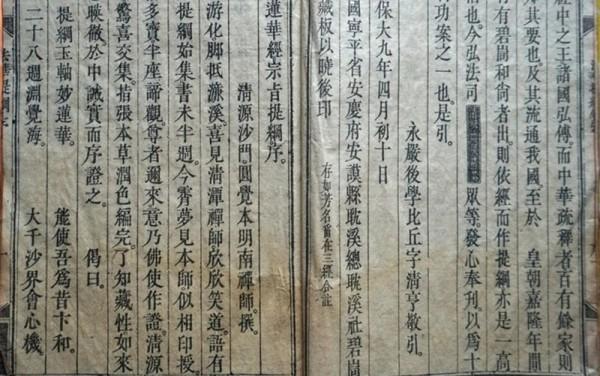 經中之王諸國弘傳而中華疏釋者百有餘家則
其要也及其流通我國至於 皇朝嘉隆年間
有碧峝和尚者出則依經而作提綱亦是一高
也今弘法司 眾等發心奉刊以為十
功案之一也是引。
永嚴後學比丘字清亨敬引。
保大九年四月初十日
國寧平省安慶府安謨縣耽溪總耽溪社碧峝
藏板以曉後印 存如芳名舊在三經合註
蓮華經宗旨提綱序。
清源沙門。圓覺本明南禪師。撰。
游化脚抵溪。喜見清潭禪師欣欣笑道。語有
提綱始集書未半週。今霄夢見本師似相印授
多寶半座。諦觀尊者邇來意乃佛使作證。清源
驚喜交集。指張本草。潤色編完。了知藏性如來
映徹於中。誠實而序證之。 偈曰。
提綱玉軸妙蓮華。 能使吾為昔卞和。
二十八週淵覺海。 大千沙界會心機